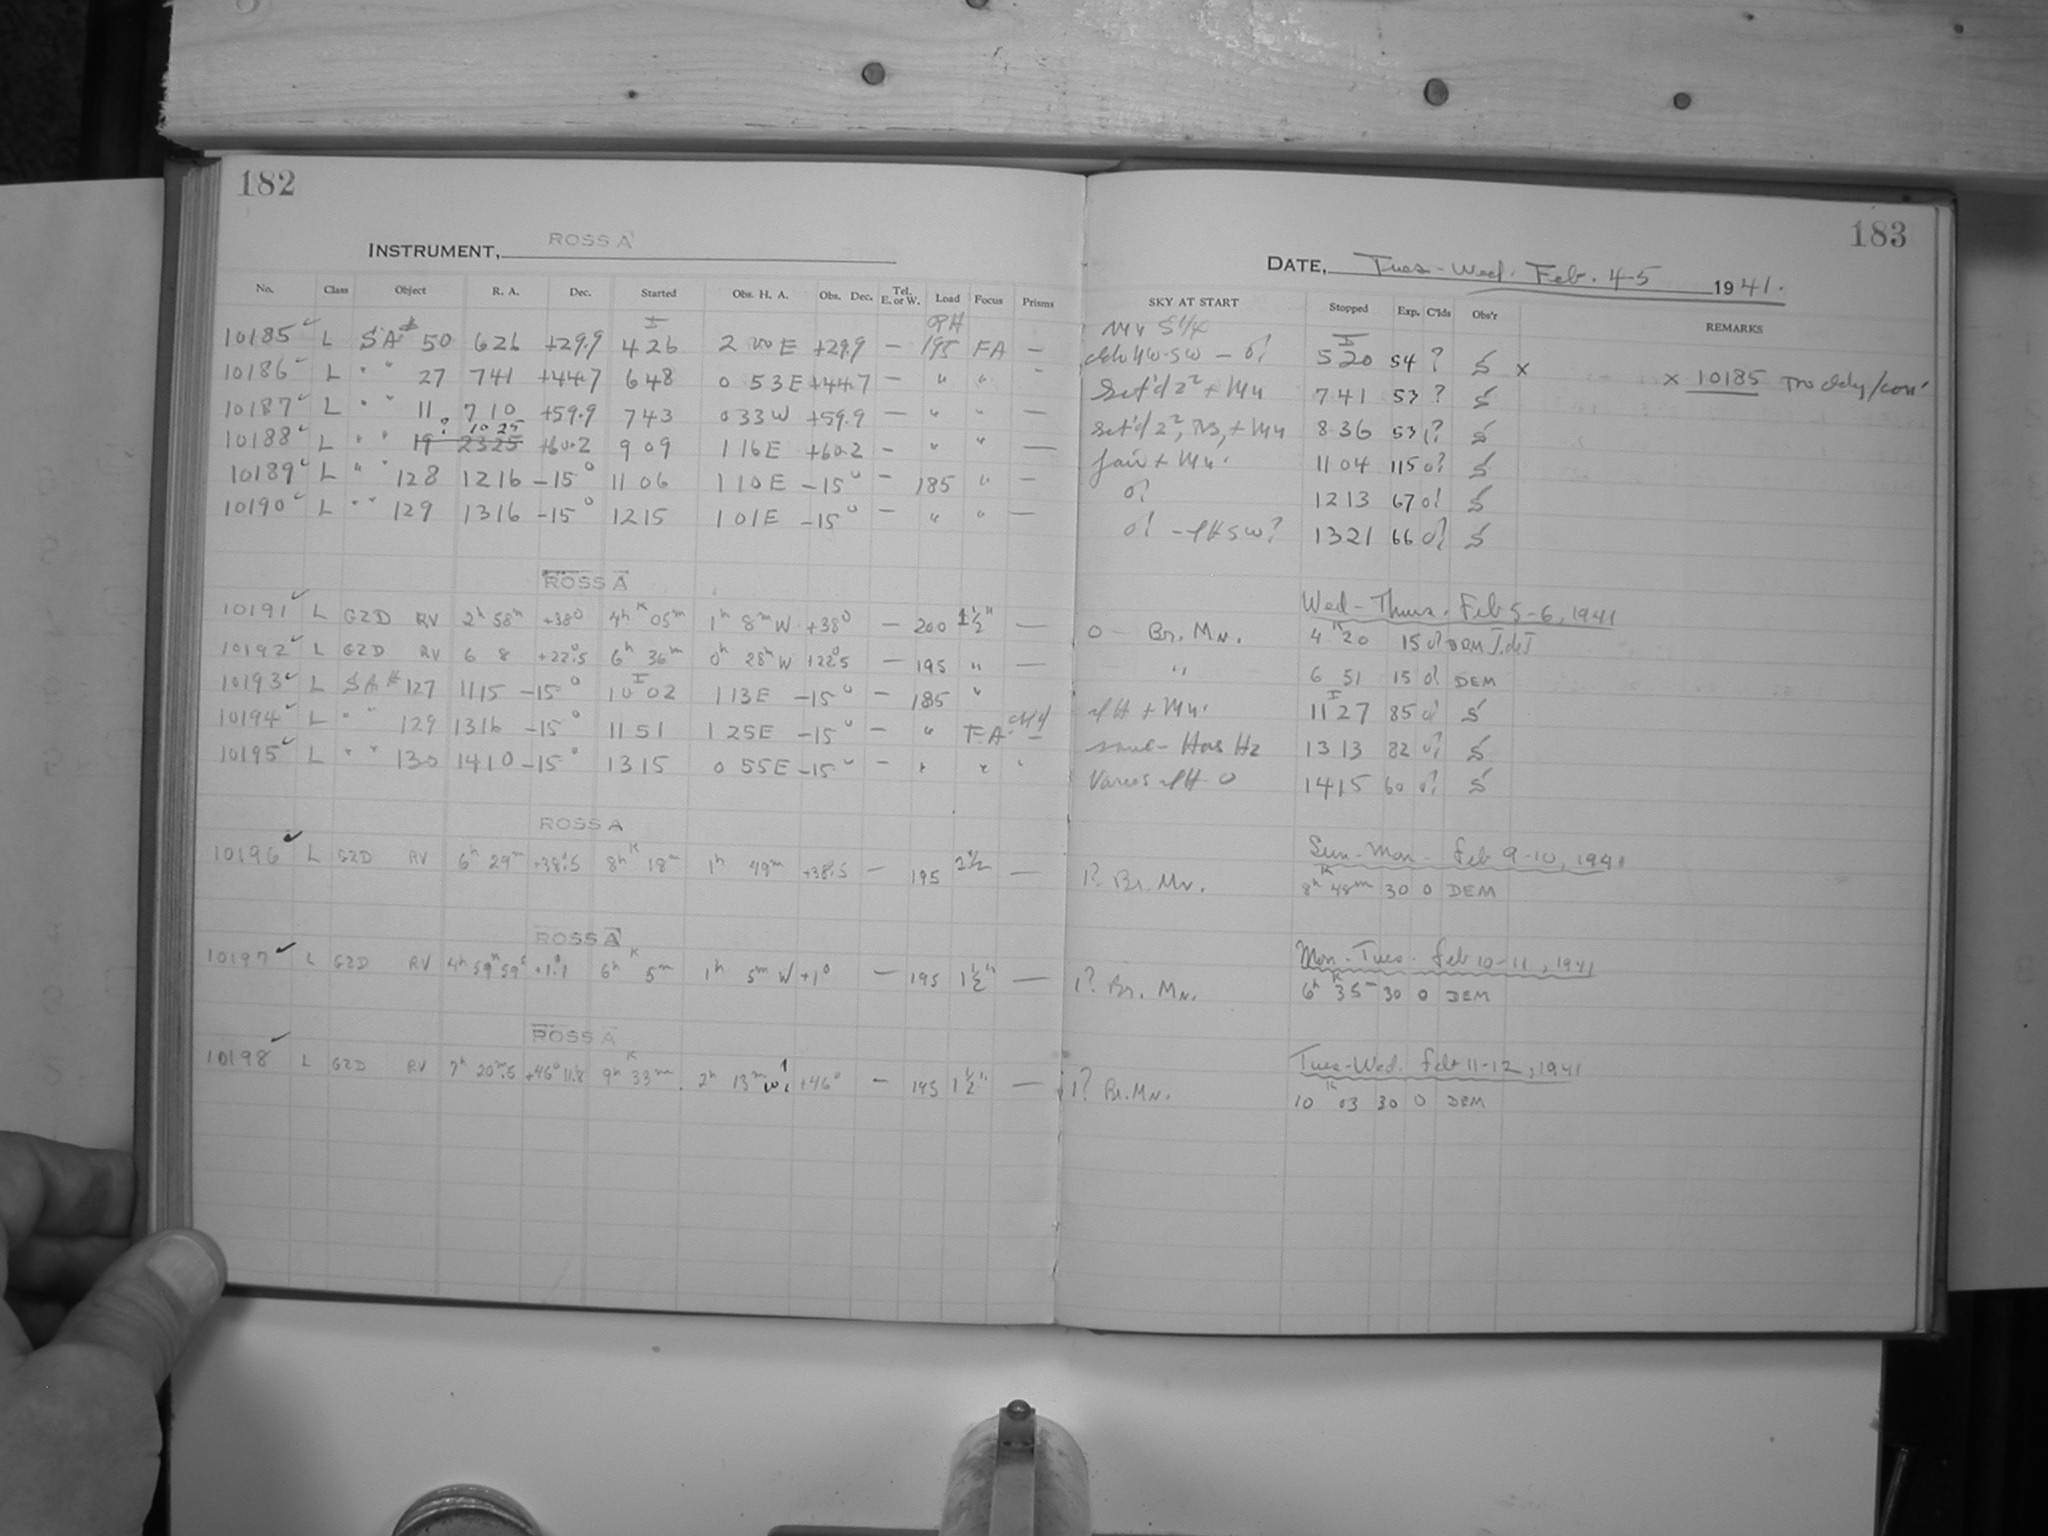 182
INSTRUMENT, ROSS A
No. Class Object R. A. Dec. Started Obs. H. A. Obs. Dec. Tel. E. or W. Load Focus Prisms
10185 L SA 50 626 +29.9 426 2 00 E +29.9 — 195 FA —
10186 L " " 27 741 +44.7 648 0 53 E +44.7 — " "
10187 L " " 11 710 +59.9 743 0 33 W +59.9 — " " —
10188 L " " 19 ? 2325 10 25 +60.2 9 09 1 16 E +60.2 — " " —
10189 L " " 128 1216 -15° 11 06 1 10 E -15° — 185 " —
10190 L " " 129 1316 -15° 1215 1 01 E -15° — " " —
ROSS A
10191 L GZD RV 2h 58m +38° 4h K 05m 1h 8m W +38° — 200 1½" —
10192 L GZD RV 6 8 +22°.5 6h 36m 0h 28m W +22°.5 — 195 " —
10193 L SA # 127 1115 -15° 10 02 1 13 E -15° — 185 "
10194 L " " 129 1316 -15° 11 51 1 25 E -15° — " FA —
10195 L " " 130 1410 -15° 1315 0 55 E -15° — " " "
ROSS A
10196 L GZD RV 6h 29m +38°.5 8h K 18m 1h 49m +38°.5 — 195 1½ —
ROSS A
10197 L GZD RV 4h 59m 59s +1°.1 6h K 5m 1h 5m W +1° — 195 1½" —
ROSS A
10198 L GZD RV 7h 20m.5 +46° 11.8 9h K 33m 2h 13m W +46° — 195 1½" —
183
DATE, Tues-Wed. Feb. 4-5 1941.
SKY AT START Stopped Exp. C'lds Obs'r REMARKS
5 20 54 ? S × × 10185
+ Mn 7 41 53 ? S
+ Mn 8 36 53 ? S
fair + Mn. 11 04 115 0? S
0? 12 13 67 0? S
0? SW? 13 21 66 0? S
Wed-Thurs. Feb 5-6, 1941
0 - Br. Mn. 4 K 20 15 0 DEM
" 6 51 15 0 DEM
+ Mn. 11 27 85 0 S
13 13 82 0? S
14 15 60 0? S
Sun-Mon- Feb 9-10, 1941
1? Br. Mn. 8h K 48m 30 0 DEM
Mon-Tues. Feb 10-11, 1941
1? Br. Mn. 6h K 35m 30 0 DEM
Tues-Wed. Feb 11-12, 1941
1? Br. Mn. 10 K 03 30 0 DEM